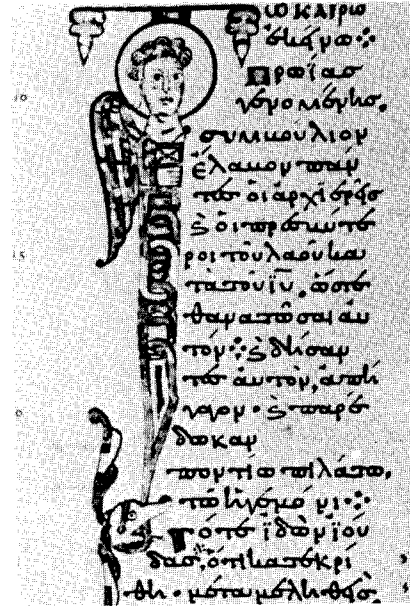 Τῶ καιρῶ
ἐκείνω:
Πρωΐας
γενομένης,
συμβούλιον
ἔλαβον πάν
τες οἱ ἀρχιερεῖς
ϗ οἱ πρεσβύτε
ροι τοῦ λαοῦ κα
τὰ τοῦ ἰῦ, ὥστε
θανατῶσαι αὐ
τόν: ϗ δήσαν
τες αὐτὸν, ἀπή
γαγον· ϗ παρέ
δωκαν
ποντίω πιλάτω,
τῶ ἡγεμόνι:
Τότε ἰδὼν ἰού
δας: ὅτι κατεκρί
θη· μεταμεληθεὶς